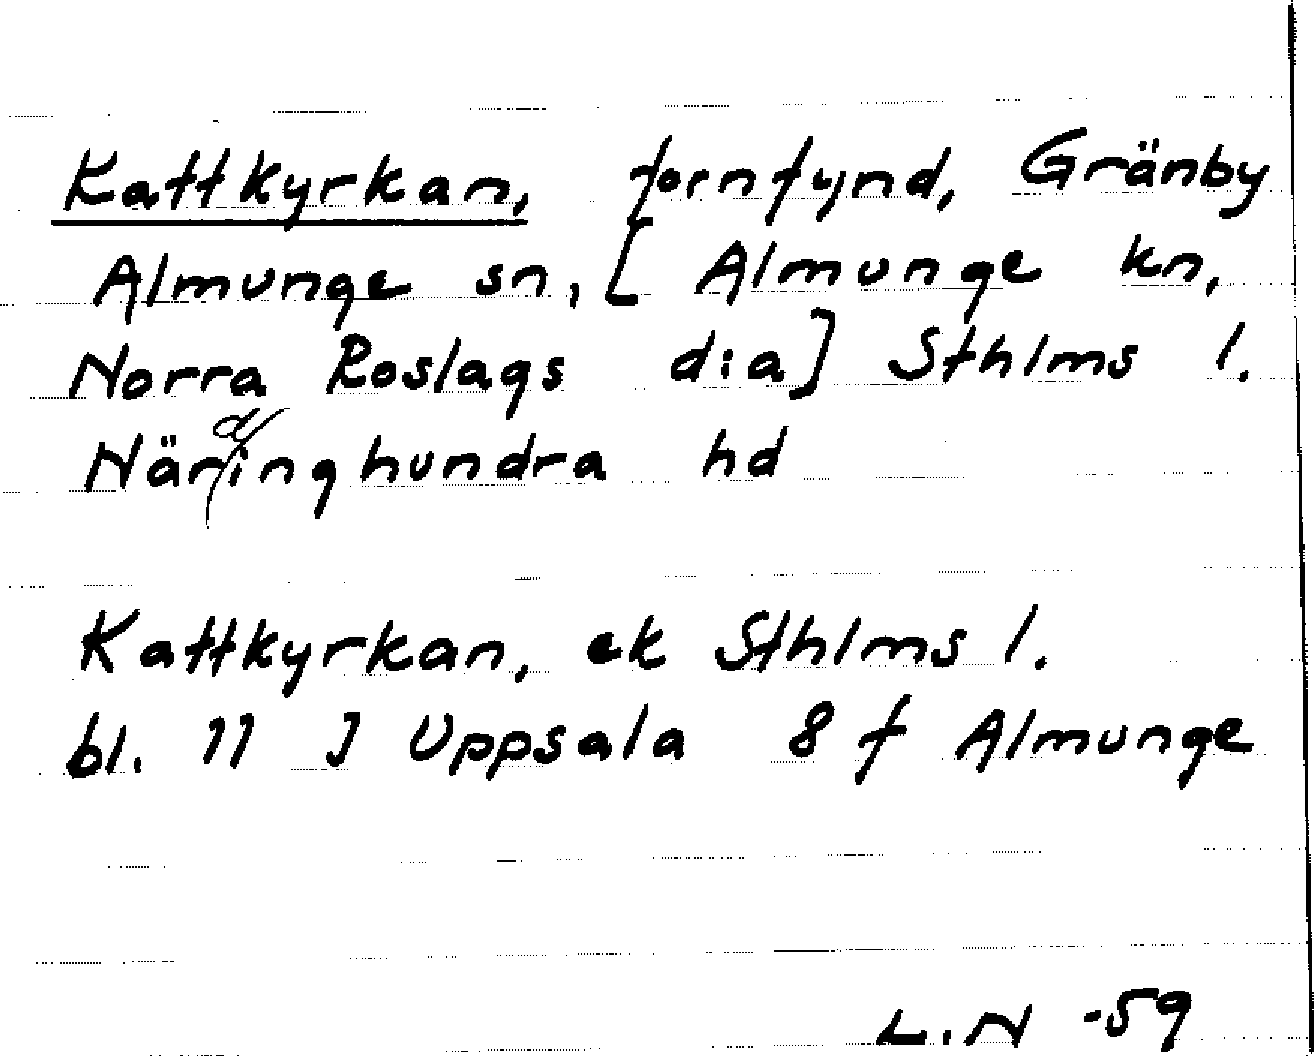 Kattkyrkan, fornfynd, Gränby
Almunge sn, [ Almunge kn,
Norra Roslags d:a] Sthlms l.
Närdinghundra hd
Kattkyrkan, ek Sthlms l.
bl. 11 I Uppsala 8 f Almunge
L.N -59